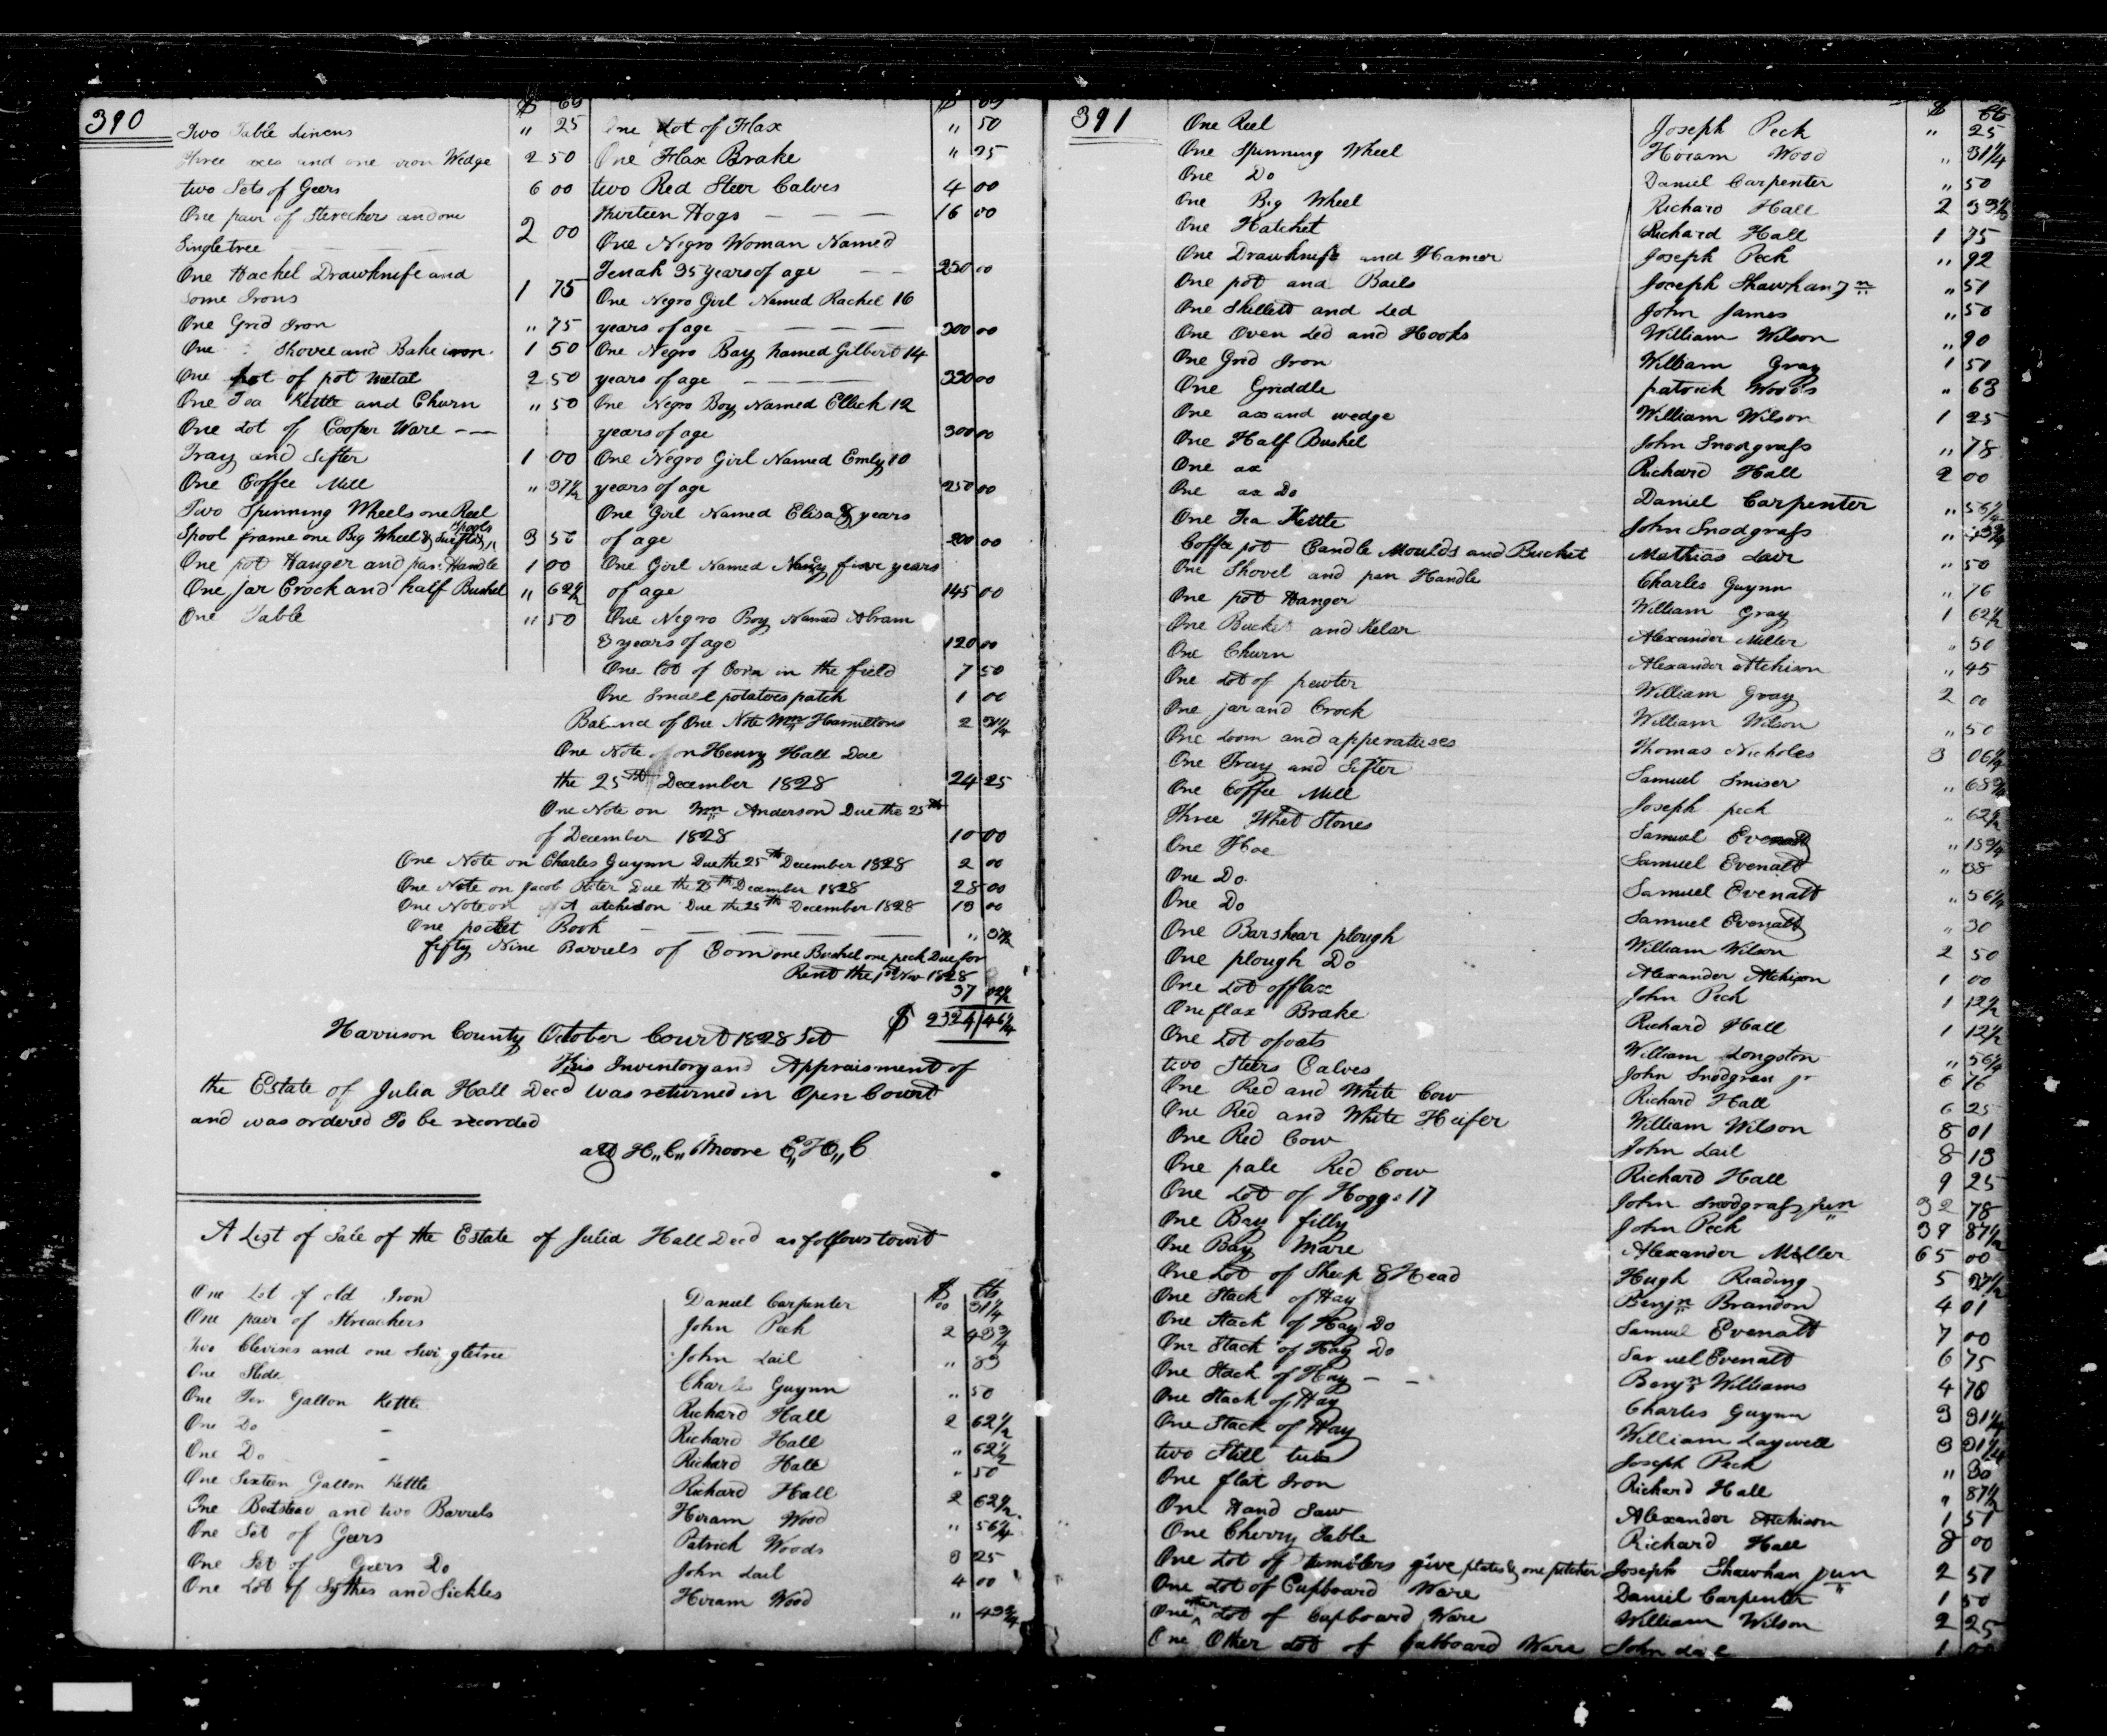 390
$ cts
Two Table Linens " 25
Three axes and one iron Wedge 2 50
two Sets of Geers 6 00
One pair of Streachers and one
Singletree 2 00
One Hackel Drawknife and
some Irons 1 75
One Grid Iron " 75
One Shovel and Bake iron 1 50
One pot of pot metal 2 50
One Tea Kettle and Churn " 50
One Lot of Cooper Ware
Tray and Sifter 1 00
One Coffee Mill " 37 1/2
Two Spinning Wheels one Reel
Spool frame one Big Wheel & Spools 3 56
One pot Hanger and pan Handle 1 00
One jar Crock and half Bushel " 62 1/2
One Table " 50
$ cts
One Lot of Flax " 50
One Flax Brake " 25
two Red Steer Calves 4 00
thirteen Hogs 16 00
One Negro Woman Named
Jenah 35 years of age 250 00
One Negro Girl Named Rachel 16
years of age 300 00
One Negro Boy named Gilbert 14
years of age 350 00
One Negro Boy Named Ellick 12
years of age 300 00
One Negro Girl Named Emly 10
years of age 250 00
One Girl Named Elisa 8 years
of age 200 00
One Girl Named Nancy five years
of age 145 00
One Negro Boy Named Abram
3 years of age 120 00
One Lot of Corn in the field 7 50
One Small potatoes patch 1 00
Balance of One Note Wm Hamiltons 2 31 1/4
One Note on Henry Hall Due
the 25th December 1828 24 25
One Note on Wm Anderson Due the 25th
of December 1828 10 00
One Note on Charles Guynn Due the 25th December 1828 2 00
One Note on Jacob Due the 25th December 1828 28 00
One Note on A atchison Due the 25th December 1828 13 00
One pocket Book " 37 1/2
fifty Nine Barrels of Corn one Bushel one peck Due for
Rent the 1st Nov 1828
37 02 1/2
$ 2324 46 1/4
Harrison County October Court 1828 Sct
This Inventory and Appraisment of
the Estate of Julia Hall Decd was returned in Open Court
and was ordered To be recorded
att H,, C,, Moore C,, H,, C
A List of Sale of the Estate of Julia Hall Decd as follows towit
$ cts
One Lot of old Iron Daniel Carpenter 00 31 1/4
One pair of Streachers John Peck 2 43 3/4
two Clevises and one swingletree John Lail " 83
One Slide Charles Guynn " 50
One Ten Gallon Kettle Richard Hall 2 62 1/2
One Do Richard Hall " 62 1/2
One Do Richard Hall " 50
One Sixteen Gallon Kettle Richard Hall 2 62 1/2
One Bedstead and two Barrels Hiram Wood " 56 1/4
One Set of Geers Patrick Woods 3 25
One Set of Geers Do John Lail 4 00
One Lot of Sythes and Sickles Hiram Wood " 43 3/4
391
$ cts
One Reel Joseph Peck " 25
One Spinning Wheel Hiram Wood " 31 1/4
One Do Daniel Carpenter " 50
One Big Wheel Richard Hall 2 33 1/3
One Hatchet Richard Hall 1 75
One Drawknife and Hamer Joseph Peck " 92
One pot and Bails Joseph Shawhan Jn " 51
One Skillett and Led John James " 50
One Oven Led and Hooks William Wilson " 90
One Grid Iron William Gray 1 51
One Griddle patrick Woods " 63
One ax and wedge William Wilson 1 25
One Half Bushel John Snodgrass " 78
One ax Richard Hall 2 00
One ax Do Daniel Carpenter " 56 1/4
One Tea Kettle John Snodgrass "
Coffee pot Candle Moulds and Bucket Mathias Lair " 50
One Shovel and pan Handle Charles Guynn " 76
One pot Hanger William Gray 1 62 1/2
One Bucket and Kelar Alexander Miller " 50
One Churn Alexander Atchison " 45
One Lot of pewter William Gray 2 00
One jar and Crock William Wilson " 50
One Loom and apperatuses Thomas Nicholes 3 06 1/4
One Tray and Sifter Samuel Smiser " 68 3/4
One Coffee Mill Joseph peck " 62 1/2
Three Whet Stones Samuel Evenatt " 18 3/4
One Hoe Samuel Evenatt " 38
One Do Samuel Evenatt " 56 1/4
One Do Samuel Evenatt " 30
One Barshear plough William Wilson 2 50
One plough Do Alexander Atchison 1 00
One Lot of flax John Peck 1 12 1/2
One flax Brake Richard Hall 1 12 1/2
One Lot of oats William Longston " 56 1/4
two Steers Calves John Snodgrass jr 6 76
One Red and White Cow Richard Hall 6 25
One Red and White Heifer William Wilson 8 01
One Red Cow John Lail 8 13
One pale Red Cow Richard Hall 9 25
One Lot of Hoggs 17 John Snodgrass jun 32 78
One Bay filly John Peck 39 87 1/2
One Bay Mare Alexander Miller 65 00
One Lot of Sheep 8 Head Hugh Reading 5 37 1/2
One Stack of Hay Benjn Brandon 4 01
One Stack of Hay Do Samuel Evenatt 7 00
One Stack of Hay Do Samuel Evenatt 6 75
One Stack of Hay Benjn Williams 4 70
One Stack of Hay Charles Guynn 3 31 1/4
One Stack of Hay William Laywell 3 31 1/4
two Still tubs Joseph Peck " 30
One flat Iron Richard Hall " 87 1/2
One Hand Saw Alexander Atchison 1 51
One Cherry Table Richard Hall 8 00
One Lot of tumblers five plates & one pitcher Joseph Shawhan jun 2 57
One Lot of Cupboard Ware Daniel Carpenter 1 50
One other Lot of Cupboard Ware William Wilson 2 25
One Other Lot of Cubboard Ware John Lail 1 00